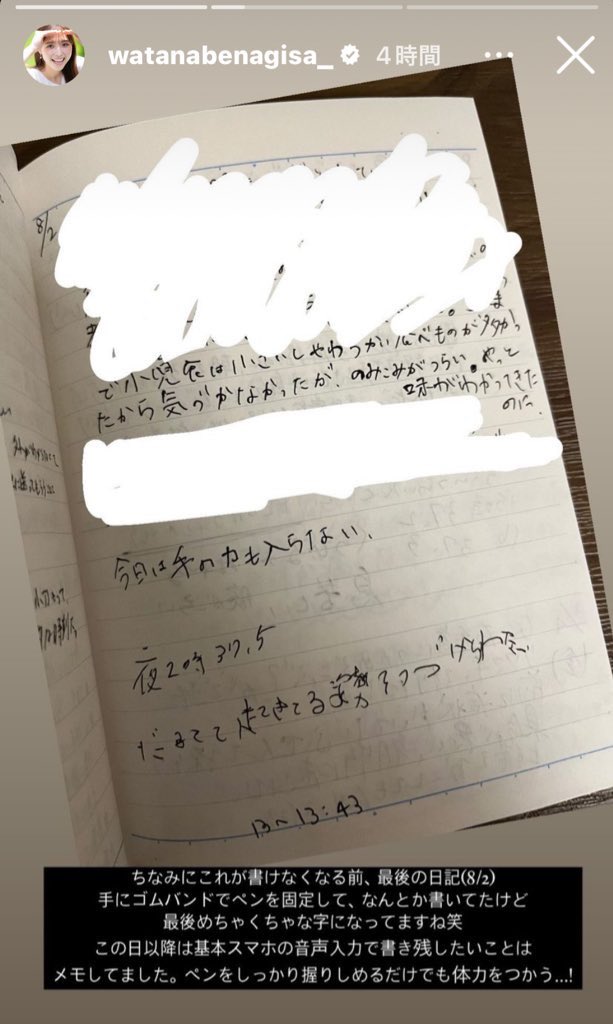 watanabenagisa_ 4時間
8/2
で小児食は小さいしやわらかい食べものが多かっ
たから気づかなかったが、のみこみがつらい。やっと
味がわかってきた
のに、
今日は手の力も入らない、
夜2時 37.5
13〜13:43
ちなみにこれが書けなくなる前、最後の日記(8/2)
手にゴムバンドでペンを固定して、なんとか書いてたけど
最後めちゃくちゃな字になってますね笑
この日以降は基本スマホの音声入力で書き残したいことは
メモしてました。ペンをしっかり握りしめるだけでも体力をつかう...!